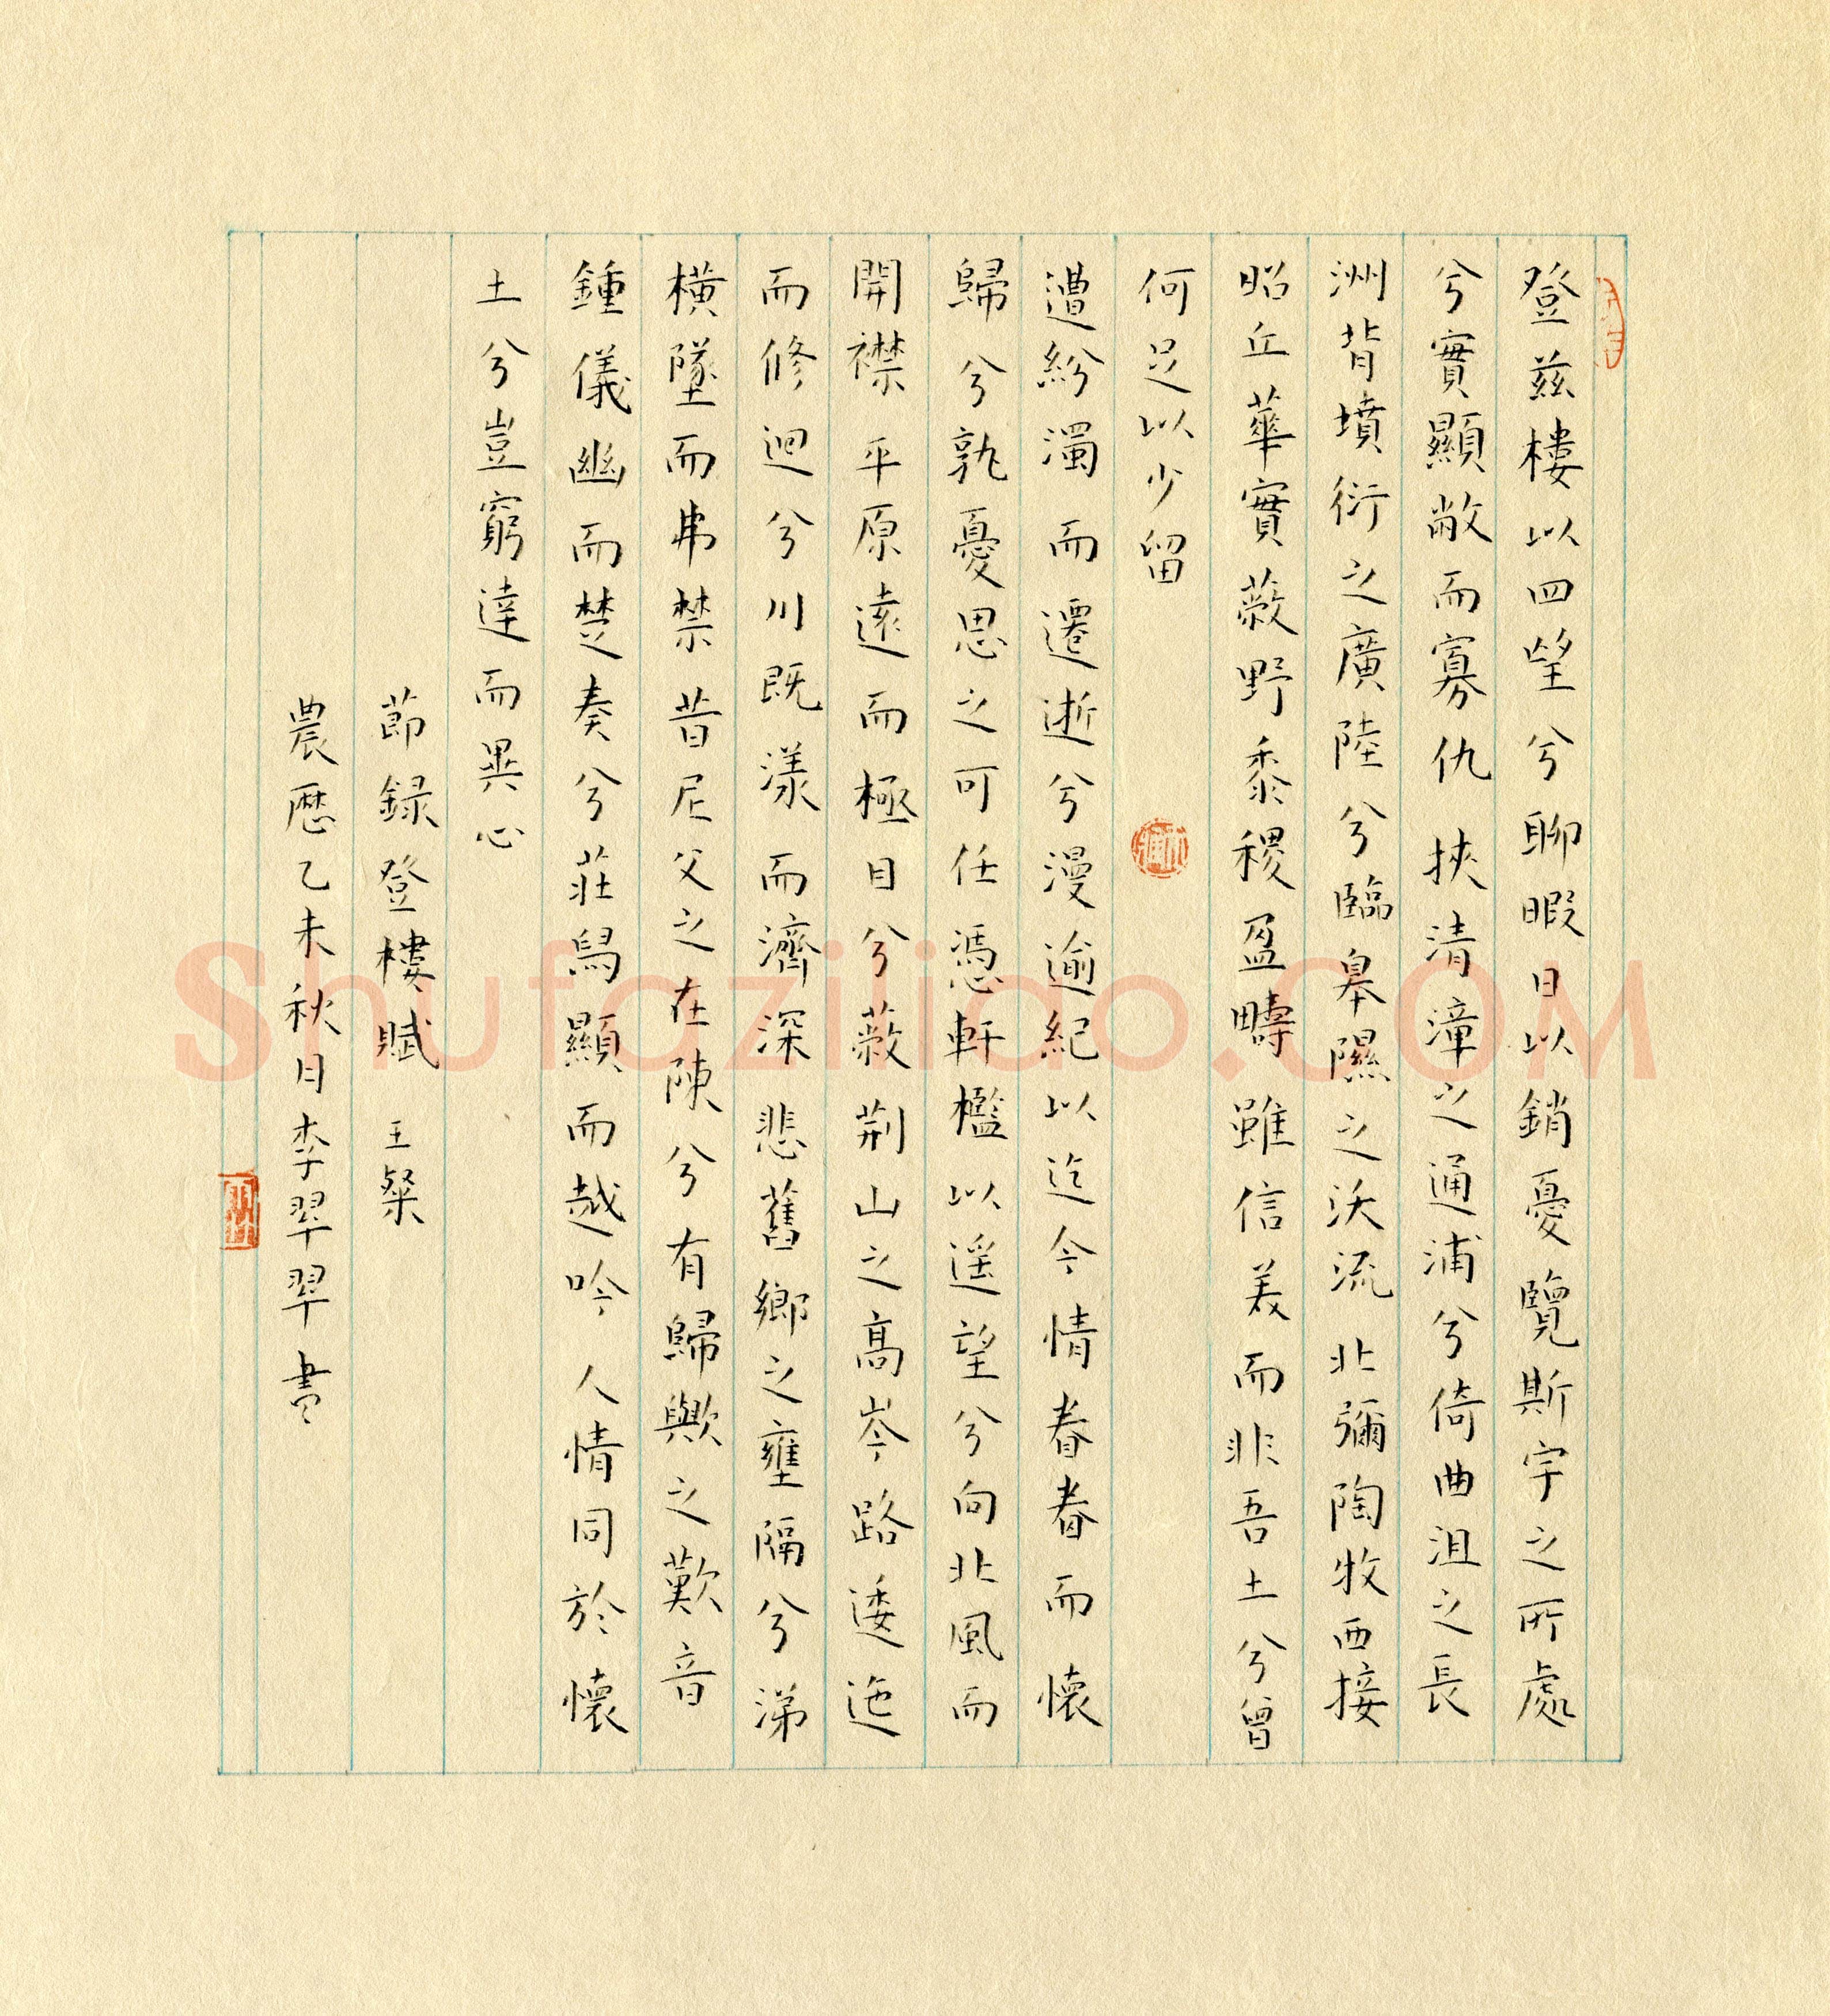 登兹樓以四望兮聊暇日以銷憂覽斯宇之所處
兮實顯敞而寡仇挾清漳之通浦兮倚曲沮之長
洲背墳衍之廣陸兮臨皋隰之沃流北彌陶牧西接
昭丘華實蔽野黍稷盈疇雖信美而非吾土兮曾
何足以少留
遭紛濁而遷逝兮漫逾紀以迄今情眷眷而懷
歸兮孰憂思之可任憑軒檻以遥望兮向北風而
開襟平原遠而極目兮蔽荆山之高岑路逶迤
而修迥兮川既漾而濟深悲舊鄉之壅隔兮涕
橫墜而弗禁昔尼父之在陳兮有歸歟之歎音
鍾儀幽而楚奏兮莊舄顯而越吟人情同於懷
土兮豈窮達而異心
節録登樓賦 王粲
農曆乙未秋日李翠翠書
Shufaziliao.COM